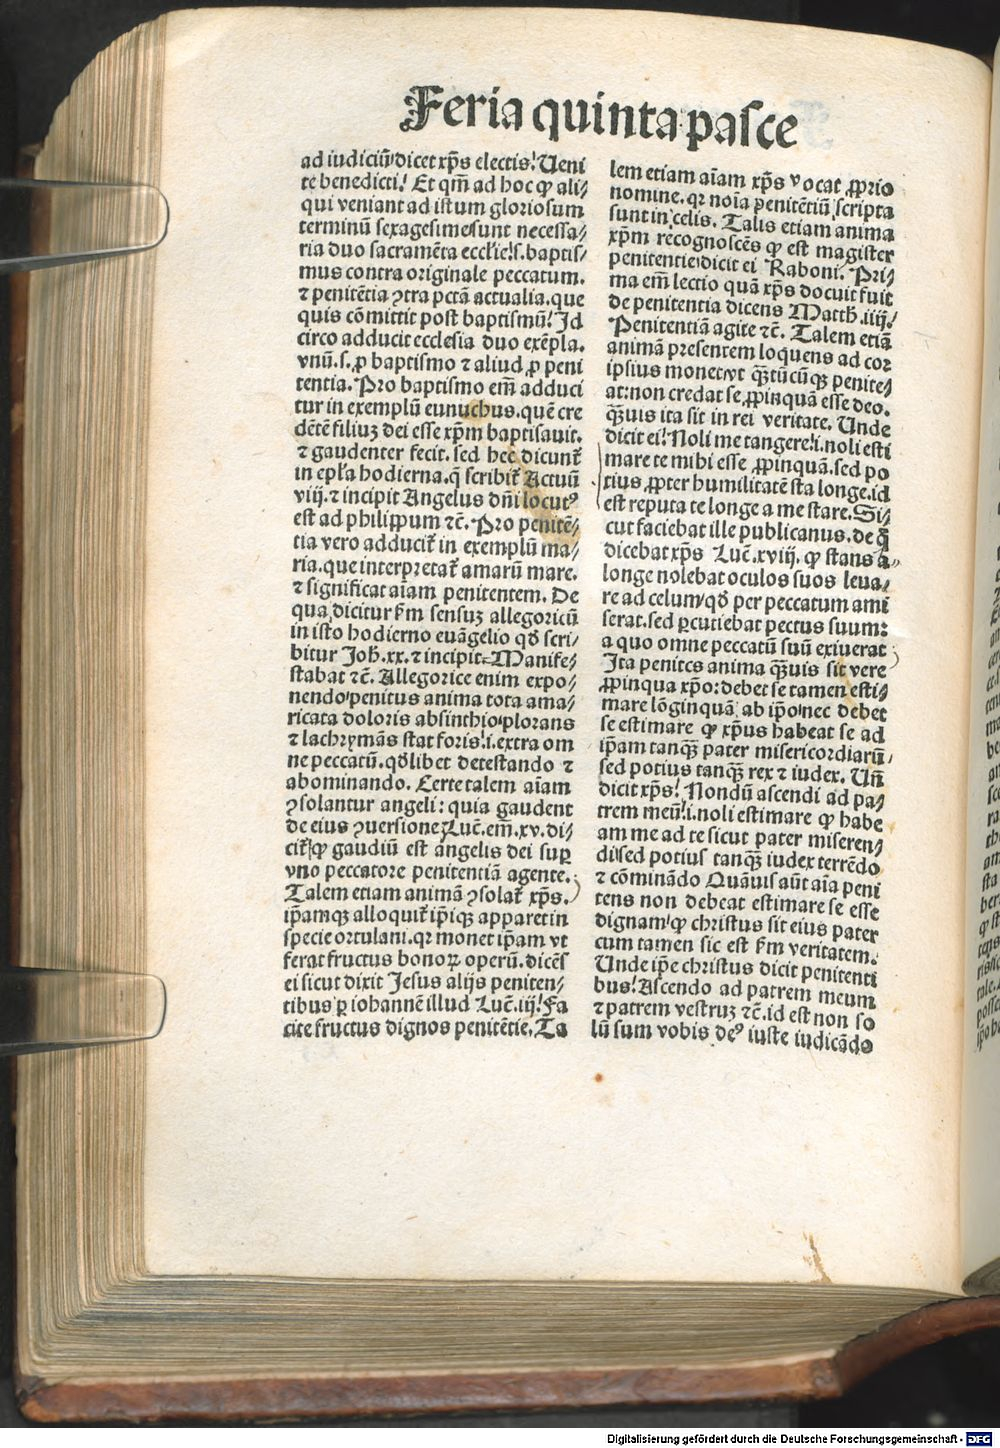 Feria quinta pasce
ad iudiciū/dicet xp̄s electis! Ueni
te benedicti! Et qm̄ ad hoc ꝙ ali⸗
qui veniant ad istum gloriosum
terminū sexagesime sunt necessa⸗
ria duo sacramēta eccl'ie!.s. baptis⸗
mus contra originale peccatum.
⁊ penitētia ꝯtra pctā actualia. que
quis cōmittit post baptismū! Id
circo adducit ecclesia duo exēpla.
vnū .s. ꝓ baptismo ⁊ aliud ꝓ peni
tentia. Pro baptismo em̄ adduci
tur in exemplū eunuchus. quē cre
dētē filiuꝫ dei esse xp̄m baptisauit.
⁊ gaudenter fecit. sed hec dicunt̄
in ep'la hodierna. q̄ scribit̄ Actuū
viij. ⁊ incipit Angelus dn̄i locutꝰ
est ad philippum ⁊c̄. Pro penitē⸗
tia vero adducit̄ in exemplū ma⸗
ria. que interpretat̄ amarū mare.
⁊ significat aīam penitentem. De
qua dicitur s̄m sensuꝫ allegoricū
in isto hodierno euāgelio qđ scri⸗
bitur Joh̄. xx. ⁊ incipit⸗ Manife⸗
stabat ⁊c̄. Allegorice enim expo⸗
nendo/penitus anima tota ama⸗
ricata doloris absinthio/plorans
⁊ lachrymās stat foris!.i. extra om
ne peccatū. qđlibet detestando ⁊
abominando. Certe talem aīam
ꝯsolantur angeli: quia gaudent
de eius ꝯuersione Luc̄. em̄. xv. di⸗
cit̄/ꝙ gaudiū est angelis dei suꝑ
vno peccatore penitentiā agente.
Talem etiam animā ꝯsolat̄ xp̄s.
ip̄amqꝫ alloquit̄ ip̄iqꝫ apparet in
specie ortulani. qꝛ monet ip̄am vt
ferat fructus bonoꝝ operū. dicēs
ei sicut dixit Jesus alijs peniten⸗
tibus ꝑ iohannē illud Luc̄. iij! Fa
cite fructus dignos penitētie. Ta
lem etiam aīam xp̄s vocat ꝓprio
nomine. qꝛ noīa penitētiū scripta
sunt in celis. Talis etiam anima
xp̄m recognoscēs ꝙ est magister
penitentie/dicit ei Raboni. Pri⸗
ma em̄ lectio quā xp̄s docuit fuit
de penitentia dicens Matth̄. iiij!
Penitentiā agite ⁊c̄. Talem etiā
animā presentem loquens ad cor
ipsius monet/vt qꝫ̄tūcūqꝫ penite⸗
at: non credat se ꝓpinquā esse deo.
qꝫ̄uis ita sit in rei veritate. Unde
dicit ei! Noli me tangere!.i. noli esti
mare te mihi esse ꝓpinquā. sed po
tius ꝓpter humilitatē sta longe. id
est reputa te longe a me stare. Si⸗
cut faciebat ille publicanus. de q̄
dicebat xp̄s Luc̄. xviij. ꝙ stans a⸗
longe nolebat oculos suos leua⸗
re ad celum/qđ per peccatum ami
serat. sed ꝑcutiebat pectus suum:
a quo omne peccatū suū exiuerat
Ita penitēs anima qꝫ̄uis sit vere
ꝓpinqua xp̄o: debet se tamen esti⸗
mare lōginquā ab ip̄o/nec debet
se estimare ꝙ xp̄us habeat se ad
ip̄am tanqꝫ̄ pater misericordiarū/
sed potius tanqꝫ̄ rex ⁊ iudex. Un̄
dicit xp̄s! Nondū ascendi ad pa⸗
trem meū!.i. noli estimare ꝙ habe
am me ad te sicut pater miseren⸗
di/sed potius tanqꝫ̄ iudex terrēdo
⁊ cōminādo Quāuis aūt aīa peni
tens non debeat estimare se esse
dignam/ꝙ christus sit eius pater
cum tamen sic est s̄m veritatem.
Unde ip̄e christus dicit penitenti
bus! Ascendo ad patrem meum
⁊ patrem vestruꝫ ⁊c̄. id est non so
lū sum vobis deꝰ iuste iudicādo
Digitalisierung gefördert durch die Deutsche Forschungsgemeinschaft - DFG